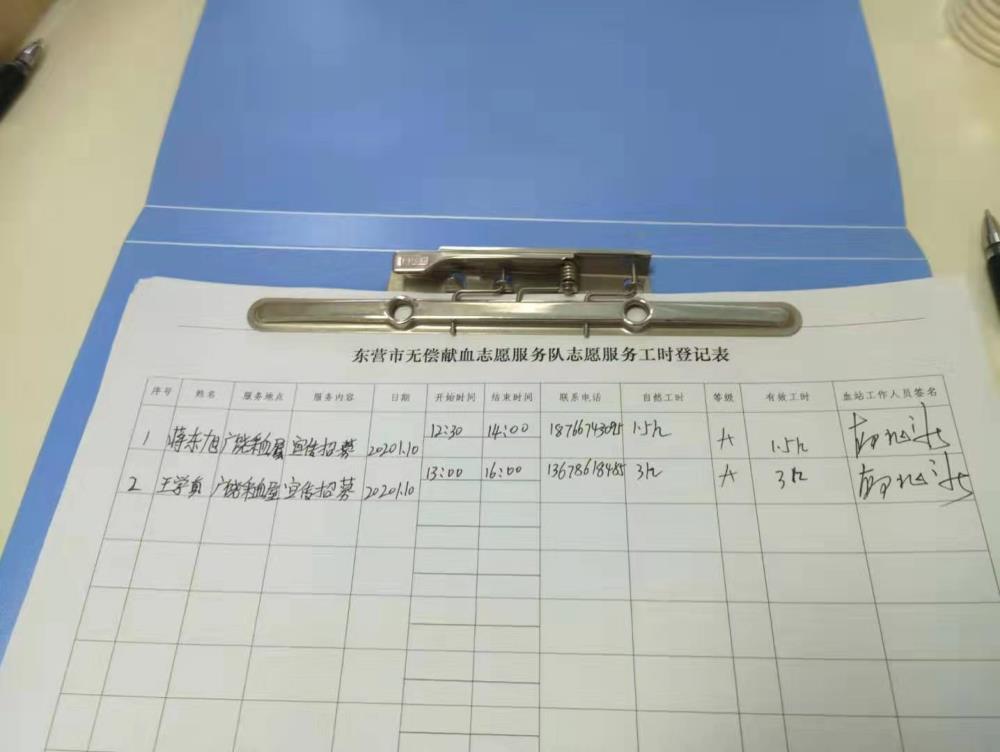 东营市无偿献血志愿服务队志愿服务工时登记表
序号 姓名 服务地点 服务内容 日期 开始时间 结束时间 联系电话 自然工时 等级 有效工时 血站工作人员签名
1 蒋东旭 广饶采血屋 宣传招募 2020.1.10 12:30 14:00 18766743095 1.5h A 1.5h
2 王学贞 广饶采血屋 宣传招募 2020.1.10 13:00 16:00 13678618485 3h A 3h